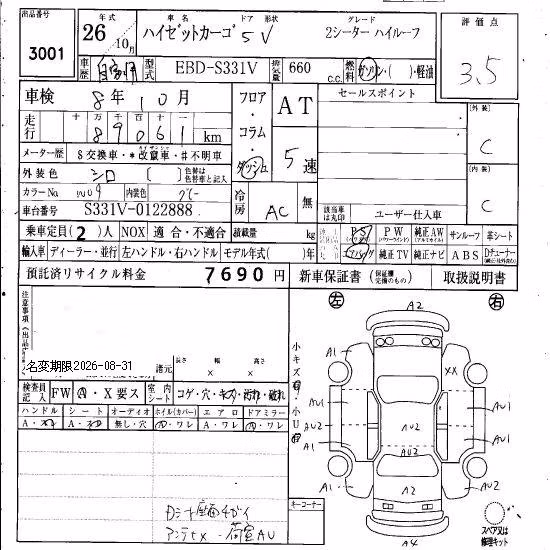 出品番号 3001
年式 26 10月
車名 ハイゼットカーゴ
ドア 形状 5V
グレード 2シーター ハイルーフ
評価点 3.5
車歴 自家用
型式 EBD-S331V
排気量 660 c.c.
燃料 ガソリン・( )・軽油
車検 8年10月
フロア・コラム・ダッシュ
AT 5速
セールスポイント
外装 C
内装 C
走行 十万 万 千 百 十 一
89061 km
メーター歴 $交換車・*改竄車・#不明車
外装色 シロ ( ) 色替は色替車と記入
カラーNo W09 内装色 グレー
冷房 AC 無
該当車は丸印
ユーザー仕入車
車台番号 S331V-0122888
乗車定員 (2)人 NOX 適合・不適合 積載量 kg
PS パワステ PW (パワーウインド) 純正AW (アルミホイル) サンルーフ 革シート
輸入車 ディーラー・並行 左ハンドル・右ハンドル モデル年式( )年
エアバッグ 純正TV 純正ナビ ABS Dチューナー
預託済リサイクル料金 7690円
新車保証書 (保証欄交換のもの) 取扱説明書
注意事項(出品店
名変期限2026-08-31
諸元 長さ 幅 高さ
× ×
左 右
小キズ有 小U有
検査員記入 FW Ⓐ・X要ス
室内シート コゲ・穴・キズ・汚れ・破れ
ハンドル シート オーディオ ホイル(カバー) エアロ ドアミラー
A・スレ A・スレ 無し・穴 A・ワレ A・ワレ A・ワレ
A2
XX
AU1 AU1
AU2 AU2
A1 AU1
AU2
A1 AU2
A2
A4
Dシート座面チガイ
アンテナX 荷室AU
キーコーナー
スペア又は修理キット